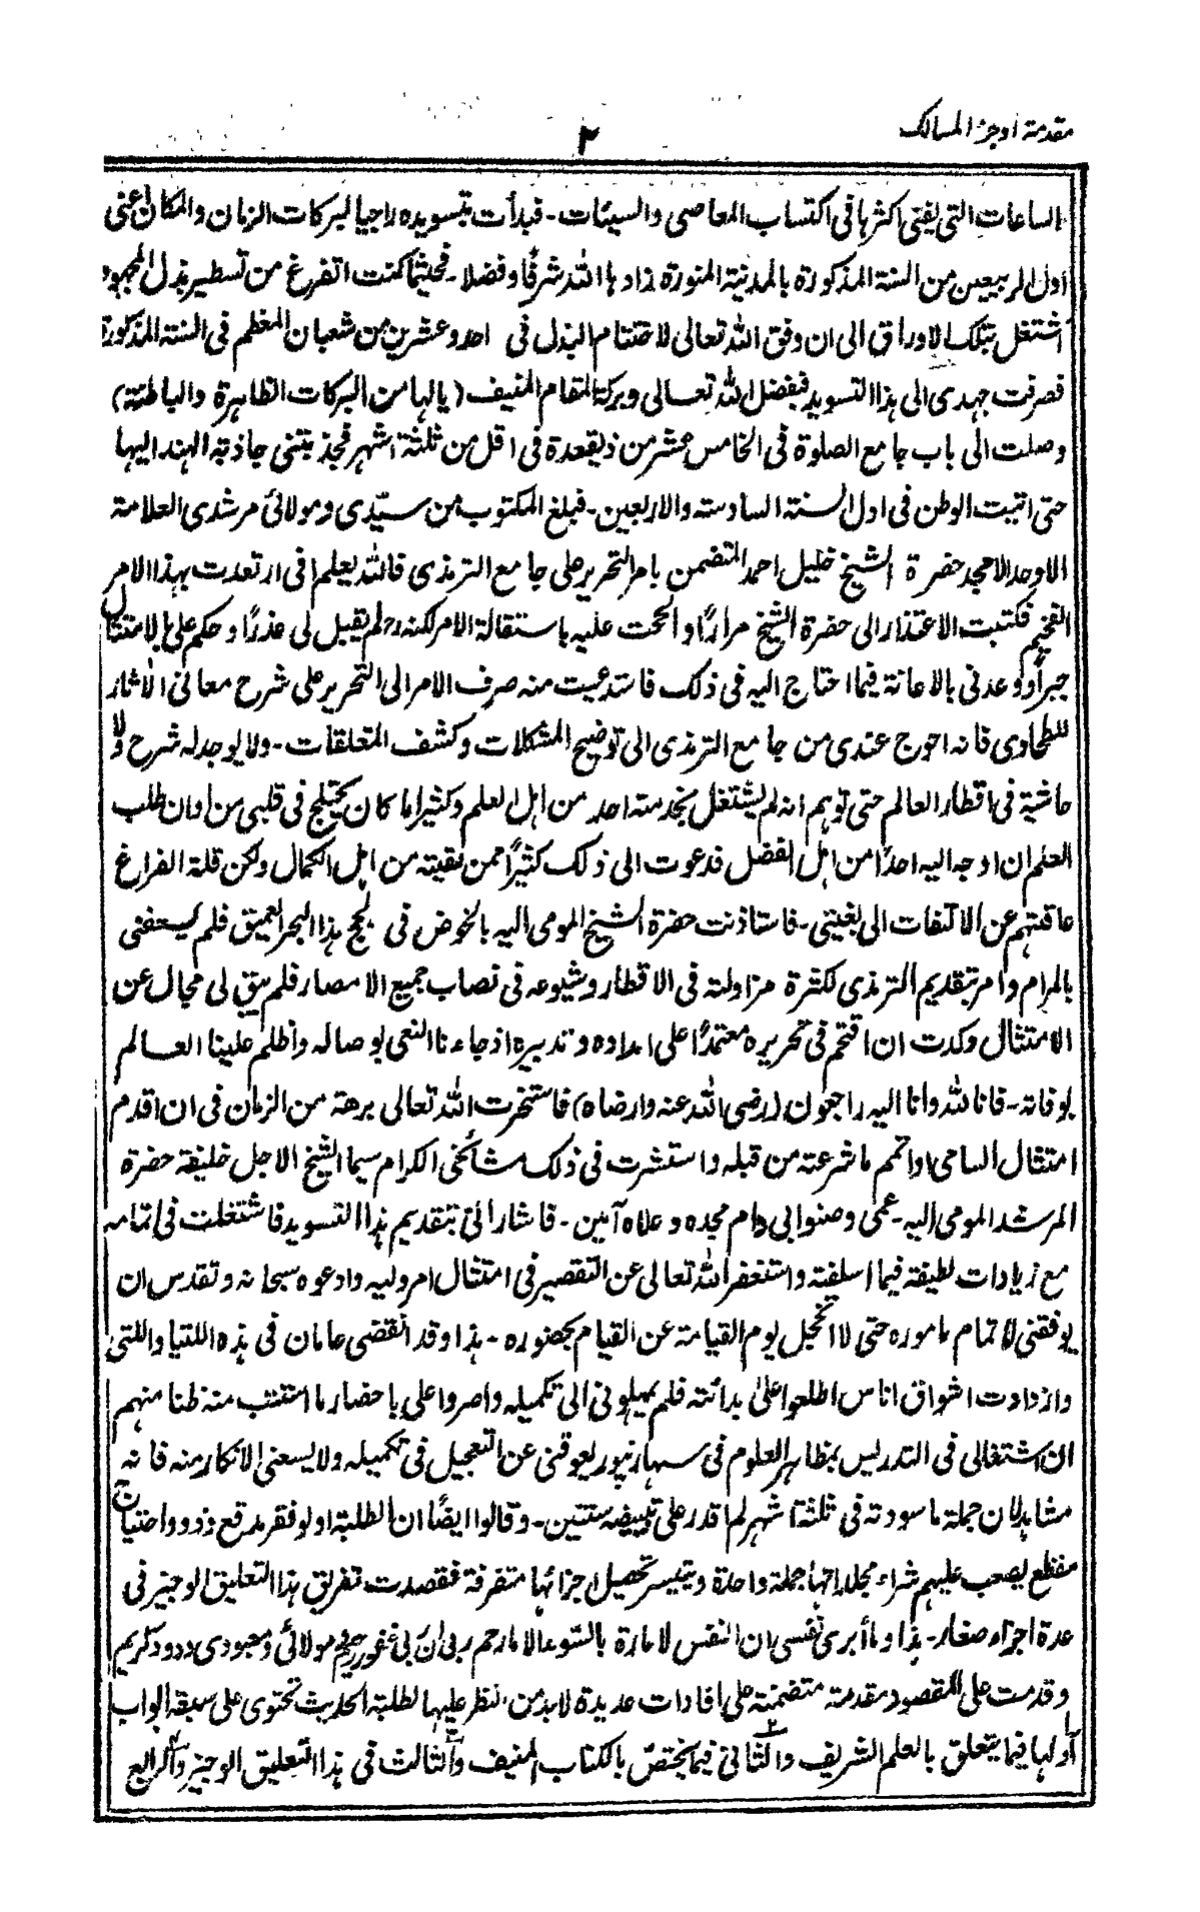 مقدمة اوجز المسالك
٢
الساعات التى يفنى اكثرها فى اكتساب المعاصى والسيئات - فبدأت بتسويده راجيا لبركات الزمان والمكان اعنى
اول الربيعين من السنة المذكورة بالمدينة المنورة زادها الله شرفًا وفضلا - فحيثما كنت اتفرغ من تسطير بذل المجهود
اشتغل بتلك الاوراق الى ان وفق الله تعالى لاختتام البذل فى احد وعشرين من شعبان المعظم فى السنة المذكورة
فصرفت جهدى الى هذا التسويد فبفضل الله تعالى وبركة المقام المنيف (يالها من البركات الظاهرة والباطنة)
وصلت الى باب جامع الصلوة فى الخامس عشر من ذيقعدة فى اقل من ثلثة اشهر فجذبتنى جاذبة الهند اليها
حتى اتيت الوطن فى اول السنة السادسة والاربعين - فبلغ المكتوب من سيّدى ومولائى مرشدى العلامة
الاوحد الامجد حضرة الشيخ خليل احمد المتضمن بامر التحرير على جامع الترمذى فالله يعلم انى ارتعدت بهذا الامر
الفخيم فكتبت الاعتذار الى حضرة الشيخ مرارًا والححت عليه باستقالة الامر لكنه رح لم يقبل لى عذرًا وحكم علىّ بالامتثال
جبرًا ووعدنى بالاعانة فيما احتاج اليه فى ذلك فاستدعيت منه صرف الامر الى التحرير على شرح معانى الاثار
للطحاوى فانه احوج عندى من جامع الترمذى الى توضيح المشكلات وكشف المتعلقات - ولا يوجد له شرح ولا
حاشية فى اقطار العالم حتى توهم انه لم يشتغل بخدمته احد من اهل العلم وكثيرا ما كان يختلج فى قلبى من اوان طلب
العلم ان اوجه اليه احدًا من اهل الفضل فدعوت الى ذلك كثيرًا ممن لقيته من اهل الكمال ولكن قلة الفراغ
عاقتهم عن الالتفات الى بغيتى - فاستاذنت حضرة الشيخ المومى اليه بالخوض فى لجج هذا البحر العميق فلم يسعفنى
بالمرام وامر بتقديم الترمذى لكثرة مزاولته فى الاقطار وشيوعه فى نصاب جميع الامصار فلم يبق لى مجال عن
الامتثال وكدت ان اقتحم فى تحريره معتمدًا على امداده وتدبيره اذ جاءنا النعى بوصاله واظلم علينا العالم
بوفاته - فانا لله وانا اليه راجعون (رضى الله عنه وارضاه) فاستخرت الله تعالى برهة من الزمان فى ان اقدم
امتثال السامى او اتمم ما شرعته من قبله واستشرت فى ذلك مشائخى الكرام سيما الشيخ الاجل خليفة حضرة
المرشد المومى اليه - عمى وصنو ابى دام مجده وعلاه آمين - فاشار الىّ بتقديم هذا التسويد فاشتغلت فى اتمامه
مع زيادات لطيفة فيما اسلفته واستغفر الله تعالى عن التقصير فى امتثال امر وليه وادعوه سبحانه وتقدس ان
يوفقنى لاتمام ماموره حتى لا اخجل يوم القيامة عن القيام بحضوره - هذا وقد انقضى عامان فى هذه اللتيا واللتى
وازدادت اشواق اناس اطلعوا على بدائته فلم يمهلونى الى تكميله واصروا على باحضار ما استتب منه ظنا منهم
ان اشتغالى فى التدريس بمظاهر العلوم فى سهارنپور يعوقنى عن التعجيل فى تكميله ولا يسعنى الانكار منه فانه
مشاهد لان جملة ما سودته فى ثلثة اشهر لم اقدر على تبييضه سنتين - وقالوا ايضًا ان الطلبة اولو فقر مدقع وذوو احتياج
مفظع يصعب عليهم شراء مجلداتها جملة واحدة ويتيسر تحصيل اجزائها متفرقة فقصدت تفريق هذا التعليق الوجيز فى
عدة اجزاء صغار - هذا وما أبرى نفسى ان النفس لامارة بالسّوء الا ما رحم ربى انّ ربى غفور رحيم مولائى ومعبودى ودود كريم
وقدمت على المقصود مقدمة متضمنة على افادات عديدة لابد من النظر عليها لطلبة الحديث تحتوى على سبعة ابواب
أولها فيما يتعلق بالعلم الشريف والثانى فيما يختصّ بالكتاب المنيف والثالث فى هذا التعليق الوجيز والرابع